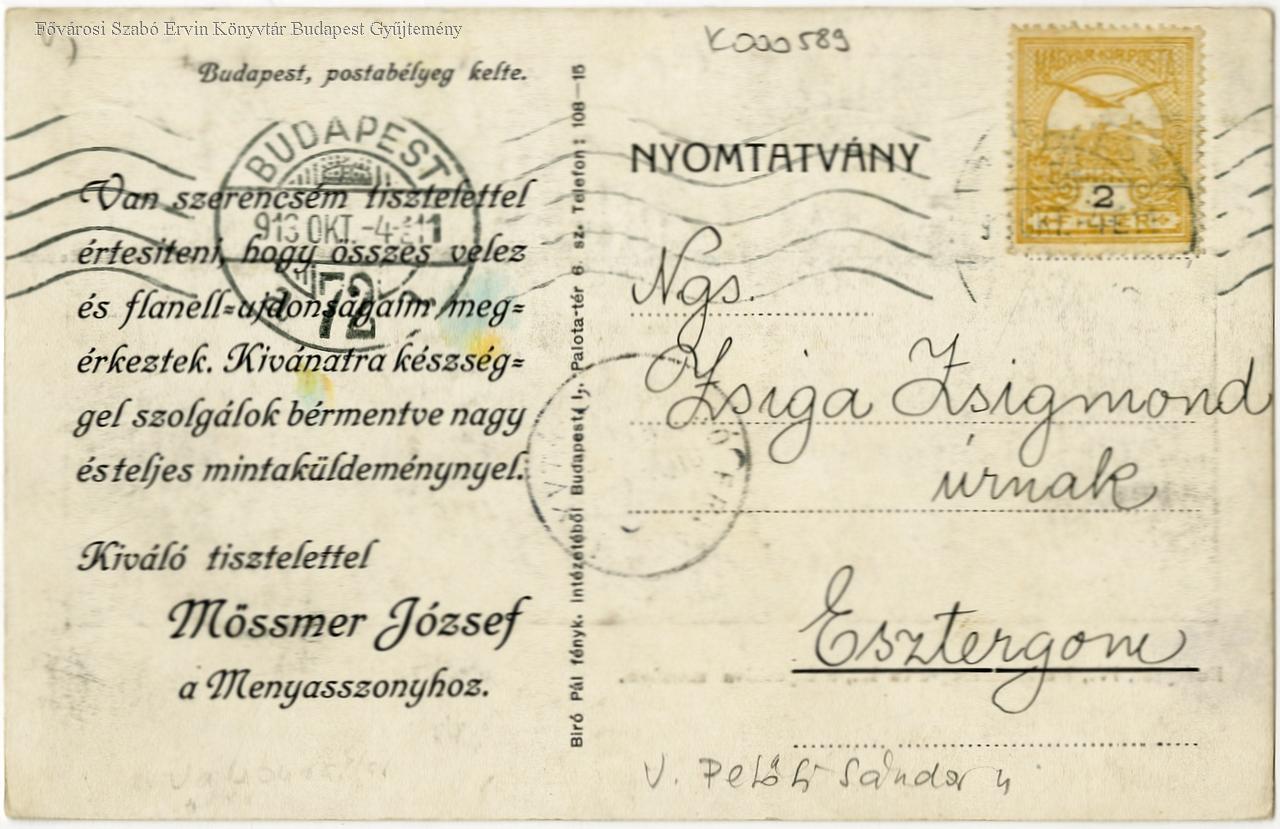 Fővárosi Szabó Ervin Könyvtár Budapest Gyűjtemény
K000589
Budapest, postabélyeg kelte.
Van szerencsém tisztelettel
értesiteni, hogy összes velez
és flanell-ujdonságaim meg-
érkeztek. Kivánatra készség-
gel szolgálok bérmentve nagy
és teljes mintaküldeménynyel.
Kiváló tisztelettel
Mössmer József
a Menyasszonyhoz.
BUDAPEST
913 OKT. -4
72
Biró Pál fényk. intézetéből Budapest, I., Palota-tér 6. sz. Telefon: 108—15
NYOMTATVÁNY
MAGYAR KIR. POSTA
2
Ngs.
Zsiga Zsigmond
úrnak
Esztergom
V. Petőfi Sándor u